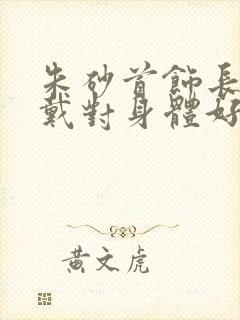 朱砂首飾長
戴對身體好
黃文虎